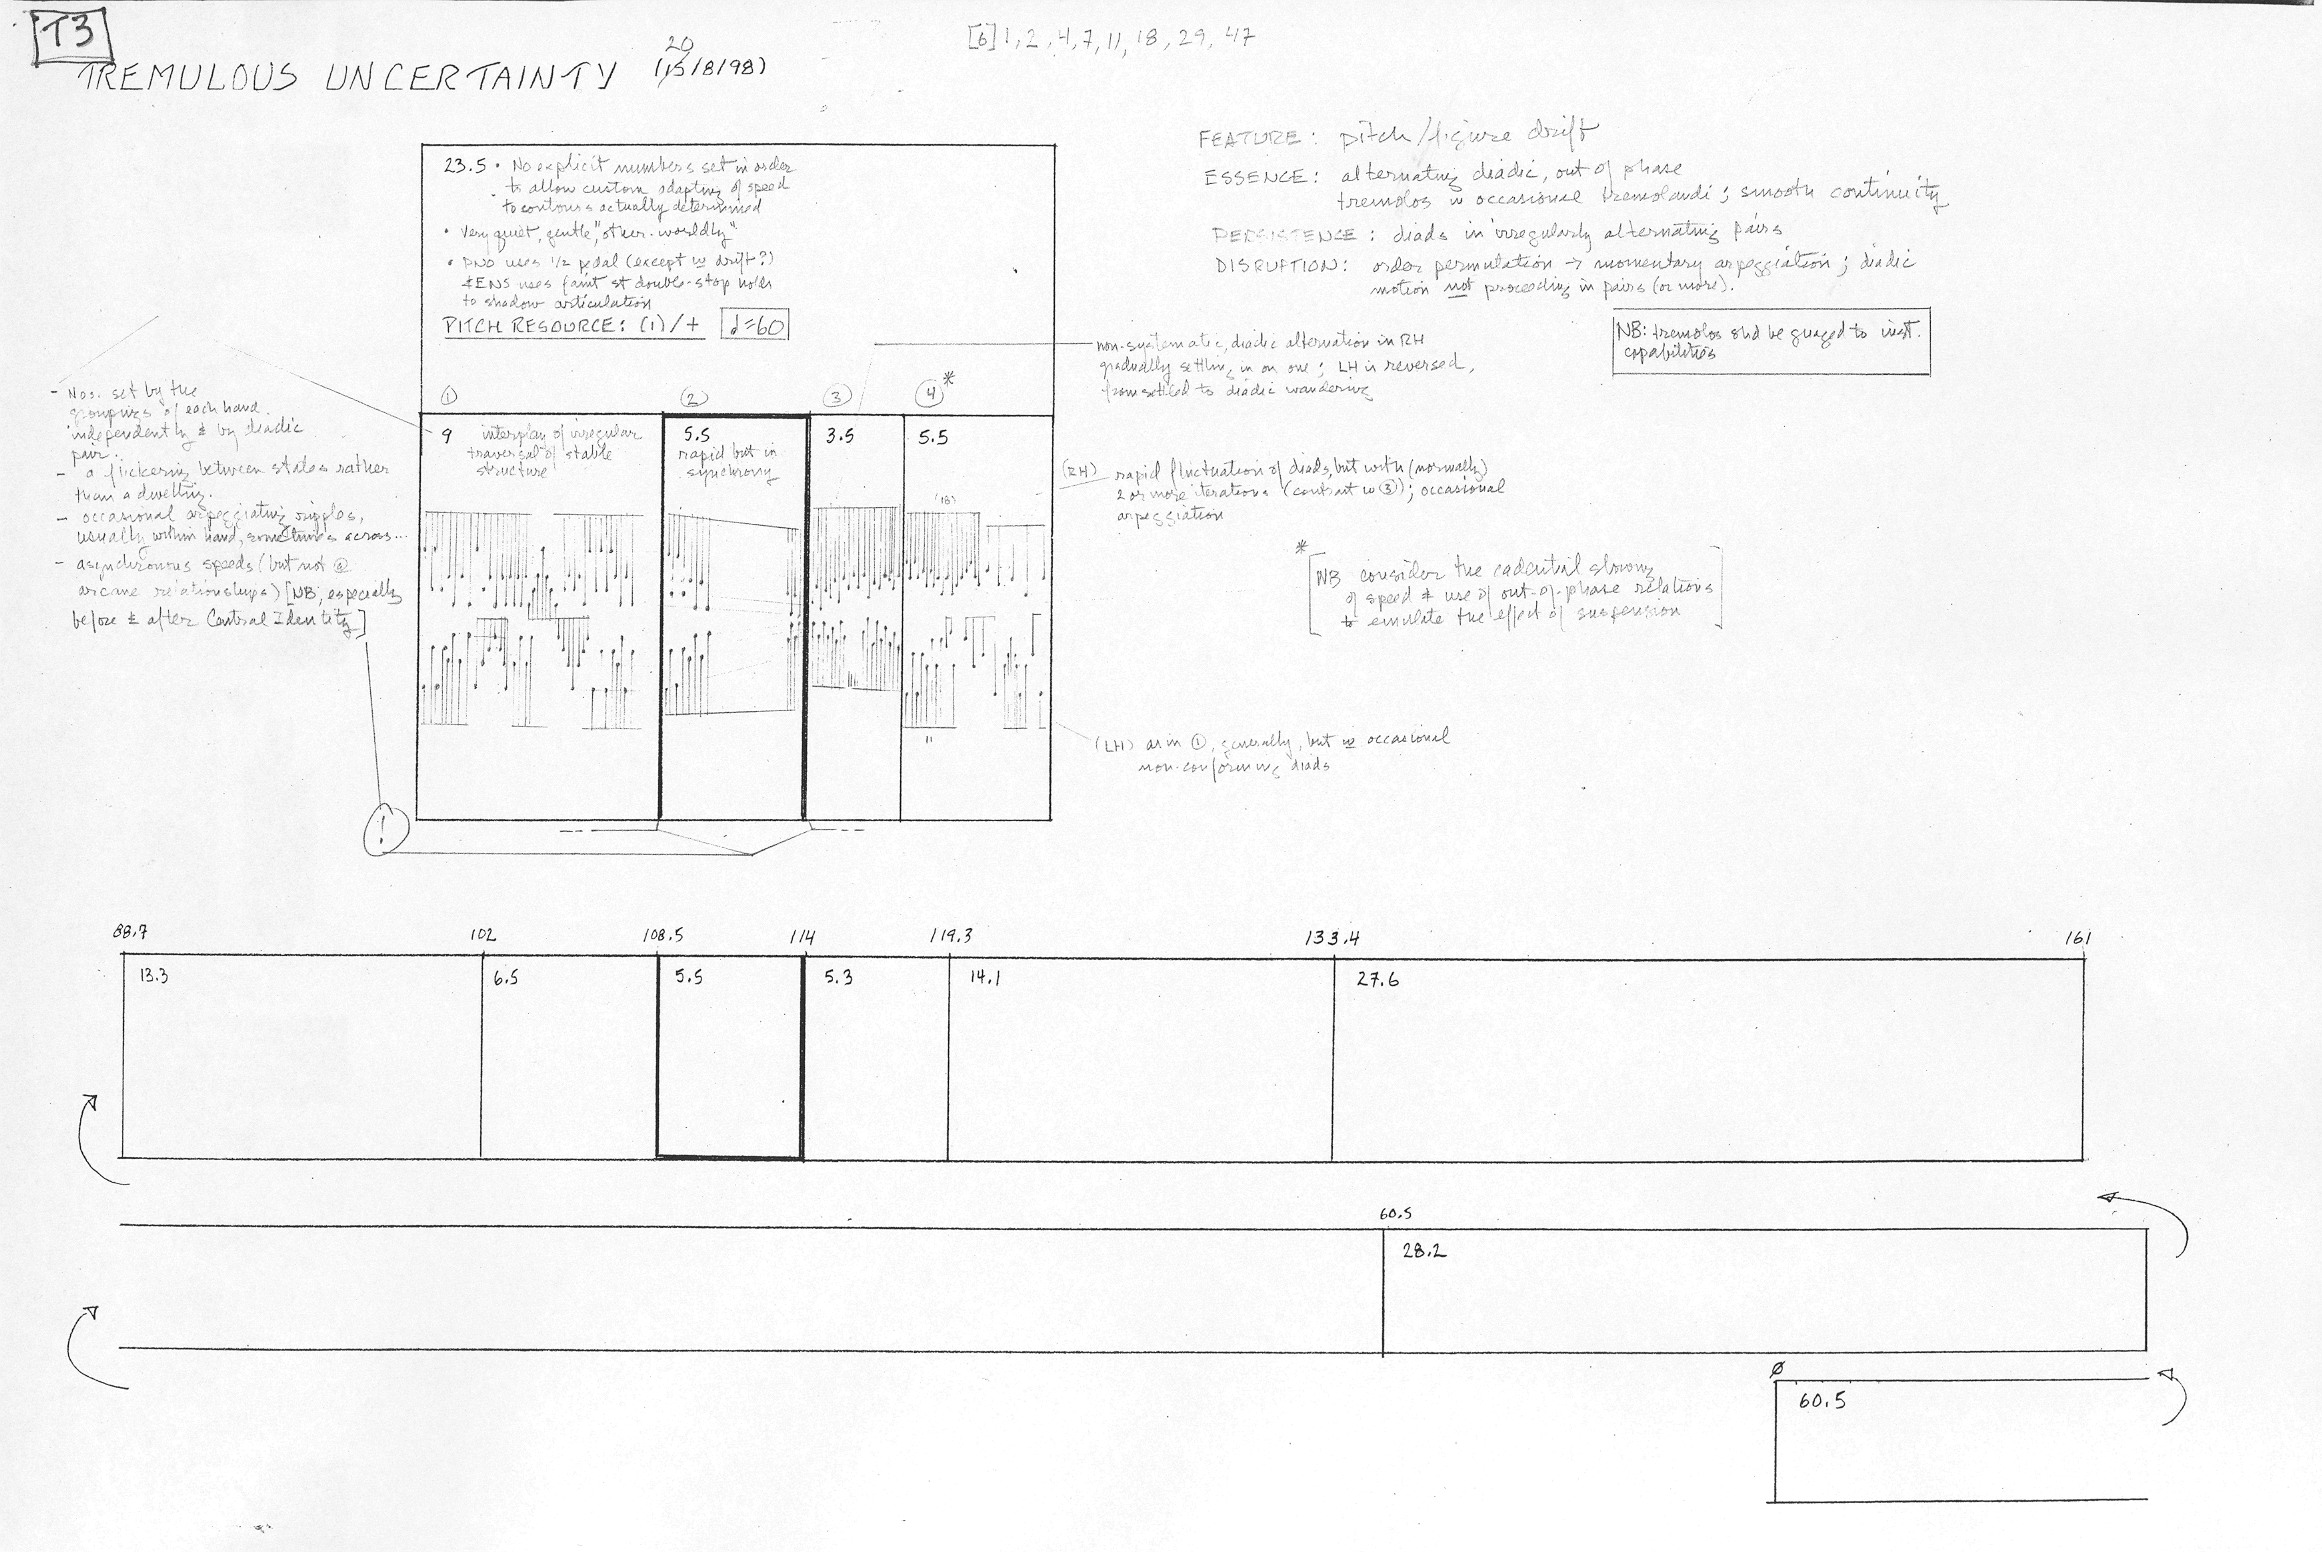 T3
TREMULOUS UNCERTAINTY (15/8/98)
20
[6] 1, 2, 4, 7, 11, 18, 29, 47
FEATURE: pitch/figure drift
ESSENCE: alternating diadic, out of phase
tremolos w occasional tremolandi; smooth continuity
PERSISTENCE: diads in irregularly alternating pairs
DISRUPTION: order permutation → momentary arpeggiation; diadic
motion not proceeding in pairs (or more).
NB: tremolos shd be guaged to inst.
capabilities
23.5 • No explicit numbers set in order
to allow custom adapting of speed
to contours actually determined
• Very quiet, gentle, "other-worldly"
• PNO uses 1/2 pedal (except w drift?)
& ENS uses faint st double-stop notes
to shadow articulation
PITCH RESOURCE: (1)/+ ♩=60
non-systematic, diadic alternation in RH
gradually settling in on one; LH is reversed,
from settled to diadic wandering
- Nos. set by the
groupings of each hand
independently & by diadic
pair.
- a flickering between states rather
than a dwelling.
- occasional arpeggiating ripples,
usually within hand, sometimes across...
- asynchronous speeds (but not @
arcane relationships) [NB, especially
before & after Central Identity]
!
① ② ③ ④*
9 interplay of irregular
traversal of stable
structure
5.5
rapid but in
synchrony
3.5
5.5
(18)
11
(RH) rapid fluctuation of diads, but with (normally)
2 or more iterations (contrast w ③); occasional
arpeggiation
*
[NB consider the cadential slowing
of speed & use of out-of-phase relations
to emulate the effect of suspension]
(LH) as in ①, generally, but w occasional
non-conforming diads
88.7 102 108.5 114 119.3 133.4 161
13.3 6.5 5.5 5.3 14.1 27.6
60.5
28.2
ø
60.5